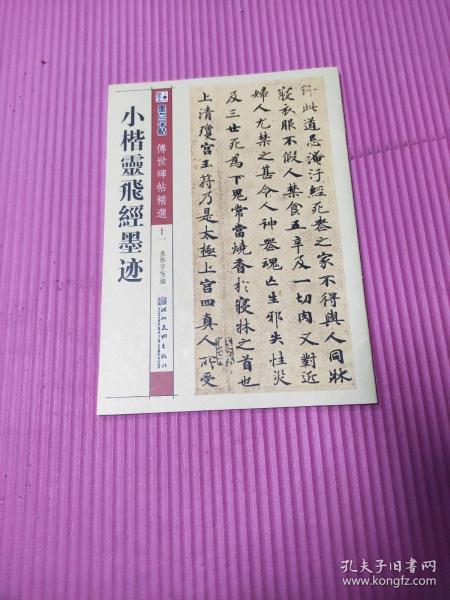 行此道忌淹汙經死喪之家不得與人同牀
寢衣服不假人禁食五辛及一切肉又對近
婦人尤禁之甚令人神喪魂亡生邪失性災
及三世死為下鬼常當燒香於寢牀之首也
上清瓊宮玉符乃是太極上宮四真人所受
墨点字帖
傳世碑帖精選 十一
墨點字帖 編
湖北美術出版社
小楷靈飛經墨迹
孔夫子旧书网
www.kongfz.com